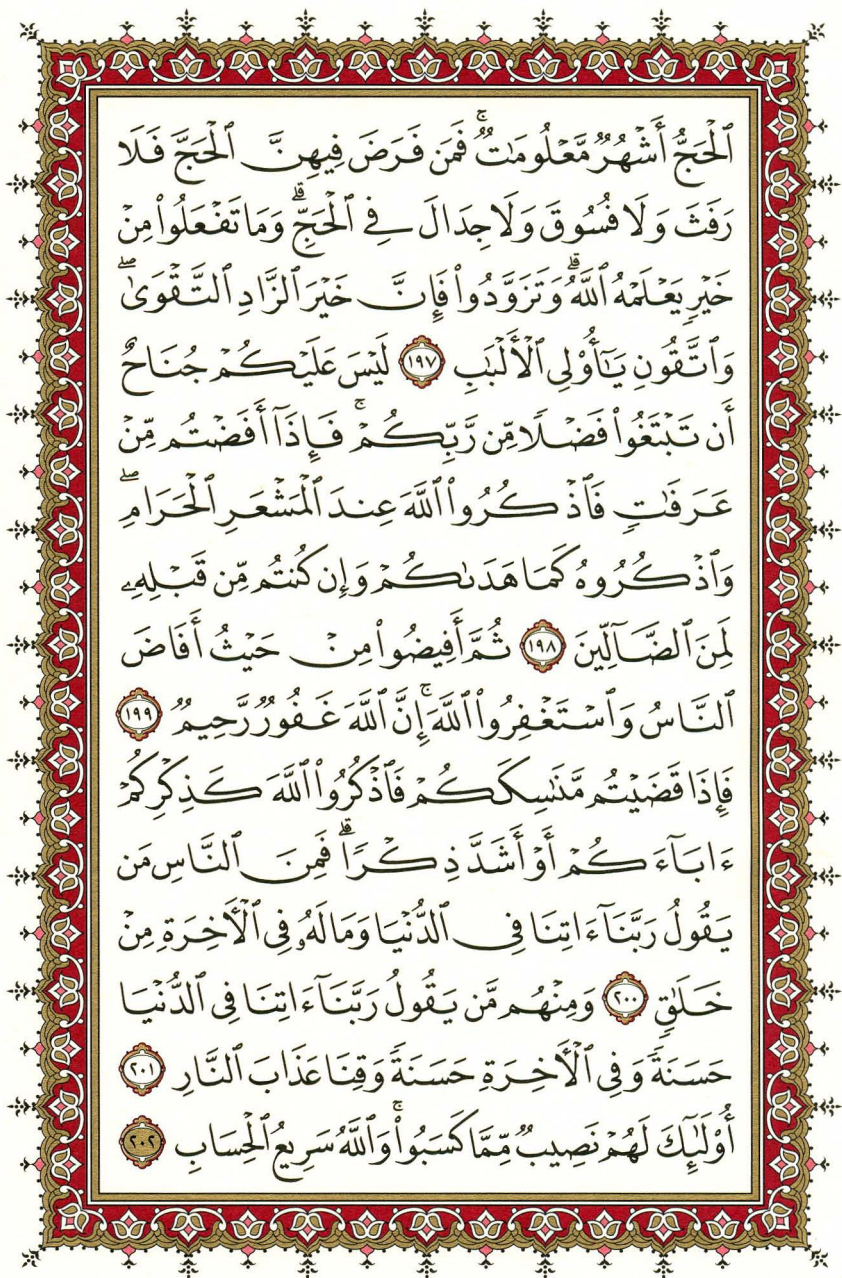 ٱلْحَجُّ أَشْهُرٌ مَّعْلُومَٰتٌ ۚ فَمَن فَرَضَ فِيهِنَّ ٱلْحَجَّ فَلَا
رَفَثَ وَلَا فُسُوقَ وَلَا جِدَالَ فِي ٱلْحَجِّ ۗ وَمَا تَفْعَلُوا۟ مِنْ
خَيْرٍ يَعْلَمْهُ ٱللَّهُ ۗ وَتَزَوَّدُوا۟ فَإِنَّ خَيْرَ ٱلزَّادِ ٱلتَّقْوَىٰ ۖ
وَٱتَّقُونِ يَٰٓأُو۟لِى ٱلْأَلْبَٰبِ ١٩٧ لَيْسَ عَلَيْكُمْ جُنَاحٌ
أَن تَبْتَغُوا۟ فَضْلًا مِّن رَّبِّكُمْ ۚ فَإِذَآ أَفَضْتُم مِّنْ
عَرَفَٰتٍ فَٱذْكُرُوا۟ ٱللَّهَ عِندَ ٱلْمَشْعَرِ ٱلْحَرَامِ ۖ
وَٱذْكُرُوهُ كَمَا هَدَىٰكُمْ وَإِن كُنتُم مِّن قَبْلِهِۦ
لَمِنَ ٱلضَّآلِّينَ ١٩٨ ثُمَّ أَفِيضُوا۟ مِنْ حَيْثُ أَفَاضَ
ٱلنَّاسُ وَٱسْتَغْفِرُوا۟ ٱللَّهَ ۚ إِنَّ ٱللَّهَ غَفُورٌ رَّحِيمٌ ١٩٩
فَإِذَا قَضَيْتُم مَّنَٰسِكَكُمْ فَٱذْكُرُوا۟ ٱللَّهَ كَذِكْرِكُمْ
ءَابَآءَكُمْ أَوْ أَشَدَّ ذِكْرًا ۗ فَمِنَ ٱلنَّاسِ مَن
يَقُولُ رَبَّنَآ ءَاتِنَا فِى ٱلدُّنْيَا وَمَا لَهُۥ فِى ٱلْأَخِرَةِ مِنْ
خَلَٰقٍ ٢٠٠ وَمِنْهُم مَّن يَقُولُ رَبَّنَآ ءَاتِنَا فِى ٱلدُّنْيَا
حَسَنَةً وَفِى ٱلْأَخِرَةِ حَسَنَةً وَقِنَا عَذَابَ ٱلنَّارِ ٢٠١
أُو۟لَٰٓئِكَ لَهُمْ نَصِيبٌ مِّمَّا كَسَبُوا۟ ۚ وَٱللَّهُ سَرِيعُ ٱلْحِسَابِ ٢٠٢